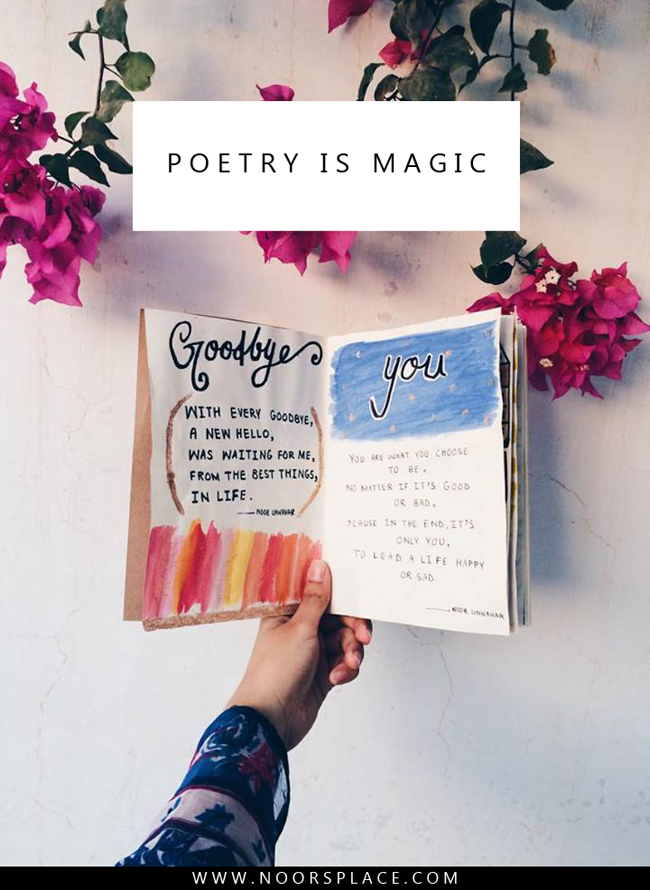 POETRY IS MAGIC
Goodbye
WITH EVERY GOODBYE,
A NEW HELLO,
WAS WAITING FOR ME,
FROM THE BEST THINGS,
IN LIFE.
— NOOR UNNAHAR
you
YOU ARE WHAT YOU CHOOSE
TO BE,
NO MATTER IF IT'S GOOD
OR BAD,
'CAUSE IN THE END, IT'S
ONLY YOU,
TO LEAD A LIFE HAPPY
OR SAD.
— NOOR UNNAHAR
WWW.NOORSPLACE.COM